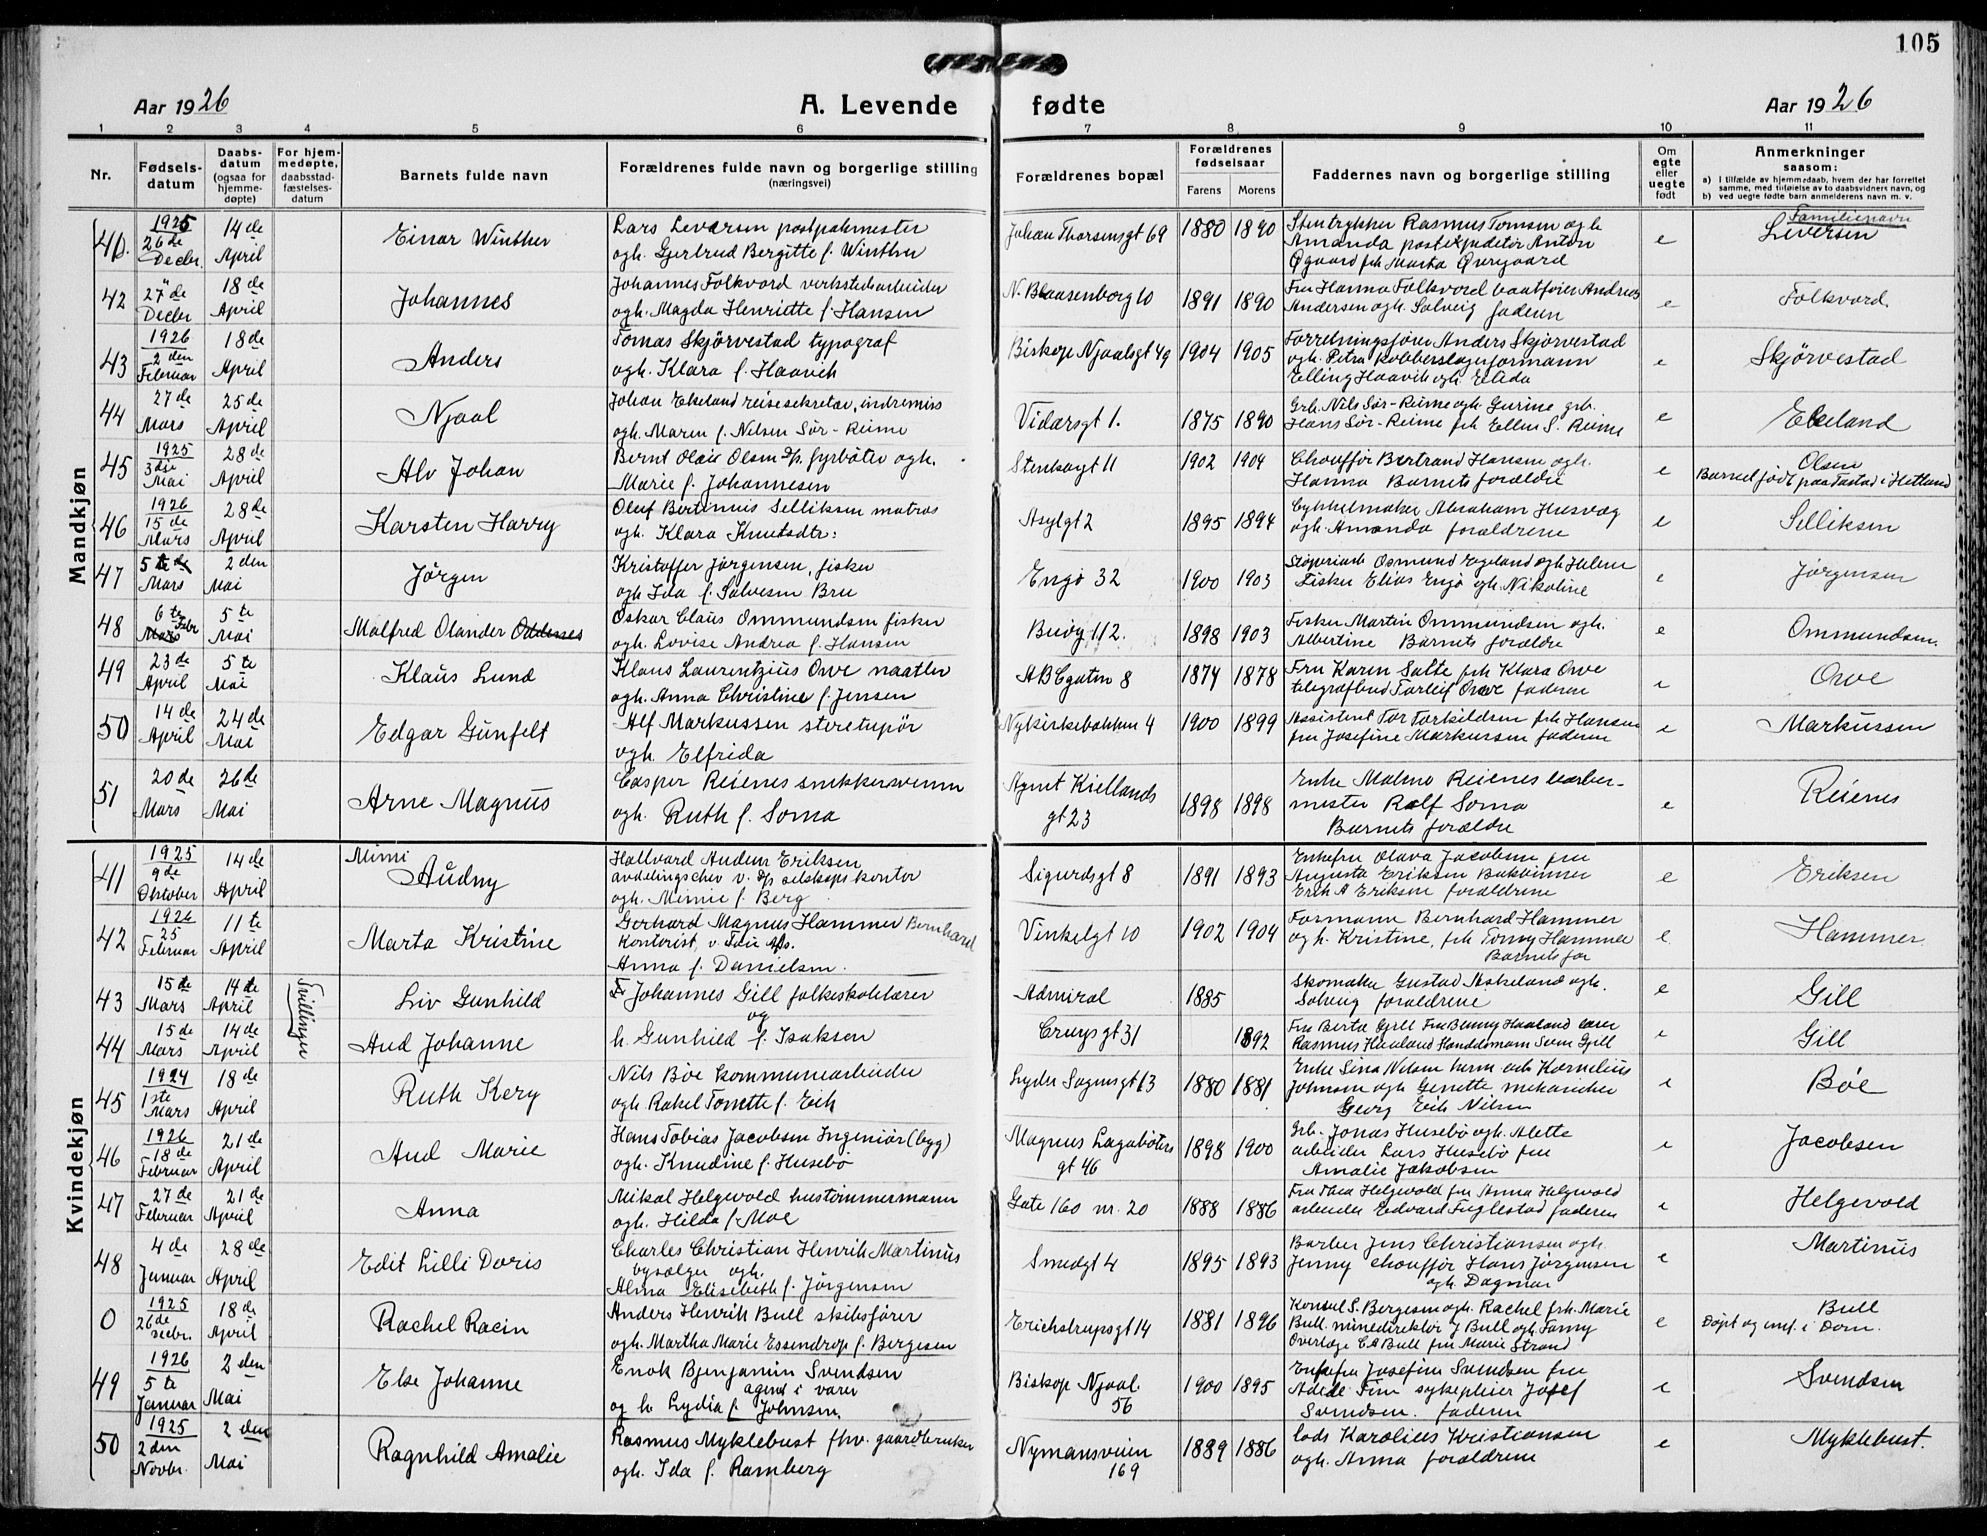 105
Aar 1926
A. Levende fødte
Aar 1926
1 2 3 4 5 6 7 8 9 10 11
Nr.
Fødsels-
datum
Daabs-
datum
(ogsaa for
hjemme-
døpte)
For hjem-
medøpte,
daabsstad-
fæstelses-
datum
Barnets fulde navn
Forældrenes fulde navn og borgerlige stilling
(næringsvei)
Forældrenes bopæl
Forældrenes
fødselsaar
Farens Morens
Faddernes navn og borgerlige stilling
Om
egte
eller
uegte
født
Anmerkninger
saasom:
a) I tilfælde av hjemmedaab, hvem der har forrettet
samme, med tilføielse av to daabsvidners navn, og
b) ved uegte fødte barn anmelderens navn m. v.
Mandkjøn
1925 26de Decbr. 14de April
Einar Winther
Lars Leversen postpakmester
ogh. Gjertrud Bergitte f. Winther
Johan Thorsensgt 69 1880 1890
Stentrykker Rasmus Tomsen ogh
Amanda postexpeditør Anton
Øgaard frk Marta Øvergaard
e
Familienavn
Leversen
42 27de Decbr 18de April
Johannes
Johannes Folkvord verkstedsarbeider
ogh. Magda Henriette f. Hansen
N. Blaasenborg 10 1891 1890
Fru Hanna Folkvord baatfører Andreas
Andersen ogh. Solveig faderen
e
Folkvord.
43 1926 2den Februar 18de April
Anders
Tomas Skjørvestad typograf
ogh. Klara f. Haavik
Biskop Njaalsgt 49 1904 1905
Forretningsfører Anders Skjørvestad
ogh. Petra kobberslagerformann
Elling Haavik ogh. Elida
e
Skjørvestad
44 27de Mars 25de April
Njaal
Johan Ekeland reisesekretær, indremiss
ogh. Maren f. Nilsen Sør-Reime
Vidarsgt 1. 1875 1890
Grb. Nils Sør-Reime ogh. Gurine grb.
Hans Sør-Reime frk Ellen S. Reime
e
Ekeland
45 1925 3die Mai 28de April
Alv Johan
Bernt Olaii Olsen d/s fyrbøter ogh.
Marie f. Johannesen
Stenhagt 11 1902 1904
Chauffør Bertrand Hansen ogh.
Hanna Barnets forældre
e
Olsen
Barnet født paa Tastad i Hetland
46 1926 15de Mars 28de April
Karsten Harry
Oluf Bertinius Selliksen matros
ogh. Klara Knutsdtr:
Asylgt 2 1895 1894
Cykkelmaker Abraham Husvæg
ogh. Amanda forældrene
e
Selliksen
47 5te Mars 2den Mai
Jørgen
Kristoffer Jørgensen, fisker
ogh Ida f. Salvesen Bru
Engø 32 1900 1903
Støperiarb Osmund Egeland ogh Helene
Fisker Elias Engø ogh. Nikoline
e
Jørgensen
48 6te Mars Febr 5te Mai
Malfred Olander Oddenes
Oskar Claus Ommundsen fisker
ogh. Lovise Andrea f. Hansen
Buøy 112. 1898 1903
Fisker Martin Ommundsen ogh.
Albertine Barnets forældre
e
Ommundsen.
49 23de April 5te Mai
Klaus Lund
Klaus Laurentzius Orve naatler
ogh. Anna Christine f. Jensen
ABCgaten 8 1874 1878
Fru Karen Salte frk Klara Orve
telegrafbud Torleif Orve faderen
e
Orve
50 14de April 24de Mai
Edgar Gunfelt
Alf Markussen steretypør
ogh. Elfrida
Nykirkebakken 4 1900 1899
Assistent Tor Torkildsen frk Hansen
fru Josefine Markussen faderen
e
Markussen
51 20de Mars 26de Mai
Arne Magnus
Casper Reienes snikkersvenn
ogh. Ruth f. Soma
Agnet Kiellands
gt 23 1898 1898
Enke Malene Reienes barber-
mester Rolf Soma
Barnets forældre
e
Reienes
Kvindekjøn
41 1925 9de Oktober 14de April
Mimi
Audny
Hallvard Andur Eriksen
avdelingschev v. d/s selskaps kontor
ogh. Mimie f. Berg
Sigurdsgt 8 1891 1893
Enkefru Olava Jacobsen fru
Augusta Eriksen Bokbinner
Erik A Eriksen forældrene
e
Eriksen
42 1926 25 Februar 11te April
Marta Kristine
Gerhard Magnus Hammer Bernhard
Kontorist, v. Tou A/s.
Anna f. Danielsen.
Vinkelgt 10 1902 1904
Formann Bernhard Hammer
ogh. Kristine, frk Tomy Hammer
Barnets far
e
Hammer.
43 15de Mars 14de April
Tvillinger
Liv Gunhild
Johannes Gill folkeskolelærer
og
Admiral 1885
Skomaker Gustav Askeland ogh.
Solveig forældrene
e
Gill
44 15de Mars 14de April
Aud Johanne
h. Gunhild f. Isaksen
Cruys gt 31 1892
Fru Berta Gjill Fru Benny Haaland lærer
Rasmus Haaland Handelsmann Sven Gjill
e
Gill
45 1924 1ste Mars 18de April
Ruth Kery
Nils Bøe kommunearbeider
ogh. Rakel Tomette f. Eik
Lyder Sagensgt 13 1880 1881
Enke Sina Nilsen herm arb Kornelius
Johnsen ogh Genette mekaniker
Georg Erik Nilsen
e
Bøe
46 1926 18de Februar 21de April
Aud Marie
Hans Tobias Jacobsen Ingeniør (byg)
ogh. Knudine f. Husebø
Magnus Lagabøters
gt 46 1898 1900
Grb. Jonas Husebø ogh. Alette
arbeider Lars Husebø fru
Amalie Jakobsen
e
Jacobsen
47 27de Februar 21de April
Anna
Mikal Helgevold hustømmermann
ogh. Hilda f. Moe
Gate 160 nr. 20 1888 1886
Fru Thea Helgevold fru Anna Helgevold
arbeider Edvard Fuglestad faderen
e
Helgevold
48 4de Januar 28de April
Edit Lilli Doris
Charles Christian Henrik Martinus
bysælger ogh.
Alma Elisabeth f. Jørgensen
Smedgt 4 1895 1893
Barber Jens Christiansen ogh.
Jenny chauffør Hans Jørgensen
ogh. Dagmar
e
Martinus
0 1925 26de Decbr. 18de April
Rachel Racin
Anders Henrik Bull skibsfører
ogh. Martha Marie Essendrop f. Bergesen
Erichstrupsgt 14 1881 1896
Konsul S. Bergesen ogh. Rachel frk. Marie
Bull. minedirektør J Bull ogh. Fanny
Overlæge C A Bull fru Marie Strand
e
Bull
Døpt og inf. i Dom.
49 1926 5te Januar 2den Mai
Else Johanne
Enok Benjamin Svendsen
agent i varer
og h. Lydia f. Johnsen.
Biskop Njaal.
56 1900 1895
Enkefru Josefine Svendsen fru
Adele Finn sykepleier Josef
Svendsen. faderen
e
Svendsen
50 1925 2den Novbr. 2den Mai
Ragnhild Amalie
Rasmus Myklebust fhv. gaardbruker
ogh. Ida f. Ramberg
Nymansveien
169 1889 1886
Lods Karolius Kristiansen
ogh. Anna forældrene
e
Myklebust.